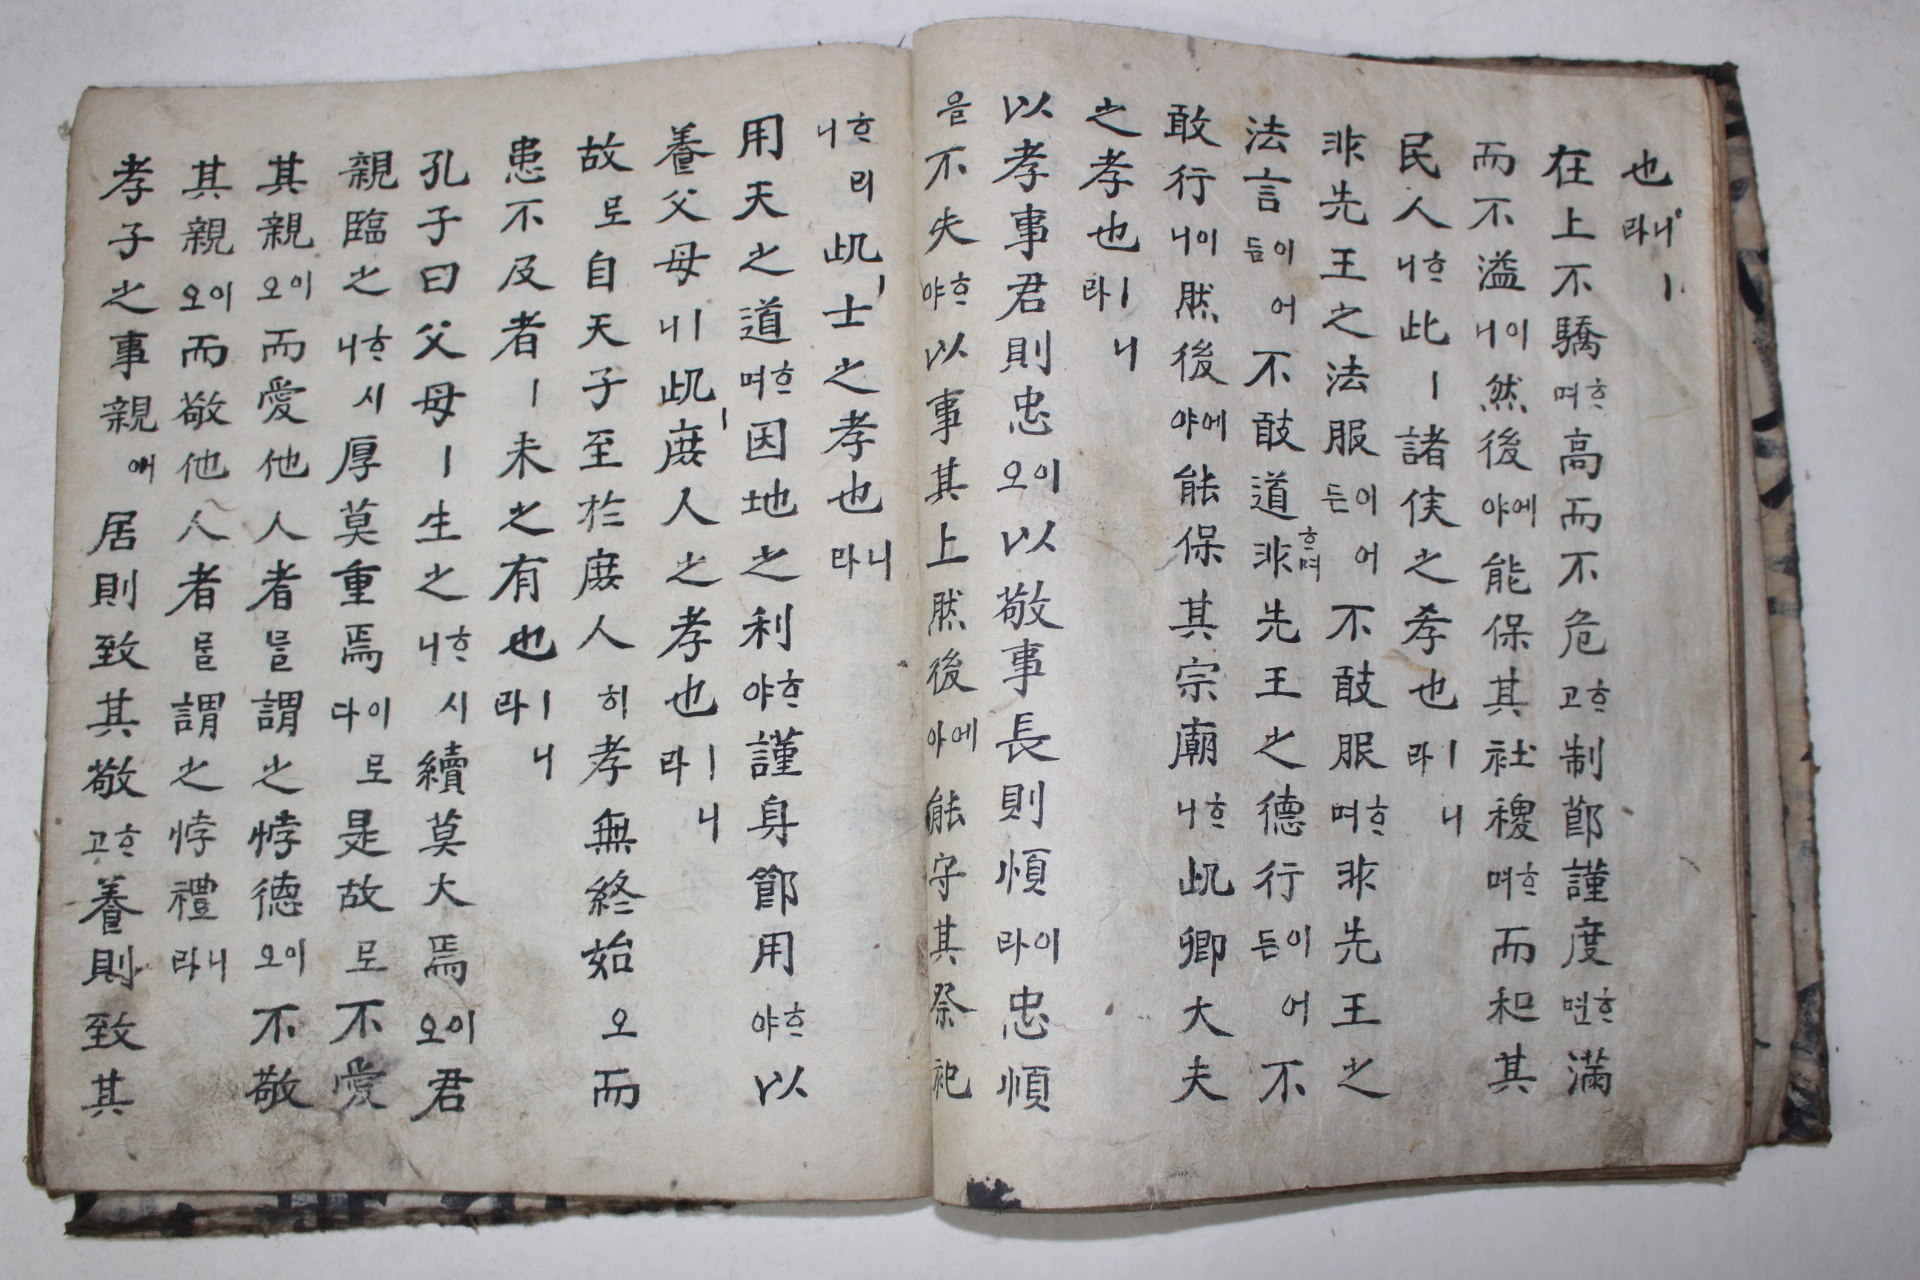 也ㅣ니라
在上不驕흐며高而不危흐고制節謹度흐면滿
而不溢이니然後에야能保其社稷흐며而和其
民人흐니此ㅣ諸侯之孝也ㅣ니라
非先王之法服이어든不敢服흐며非先王之
法言이어듬不敢道흐며非先王之德行이어든不
敢行이니然後에야能保其宗廟흐니此卿大夫
之孝也ㅣ니라
以孝事君則忠이오以敬事長則順이라忠順
을不失흐야以事其上然後에야能守其祭祀
흐리니此ㅣ士之孝也니라
用天之道흐며因地之利흐야謹身節用흐야以
養父母ㅣ니此ㅣ庶人之孝也ㅣ니라
故로自天子至於庶人히孝無終始오而
患不及者ㅣ未之有也ㅣ니라
孔子曰父母ㅣ生之흐시니續莫大焉이오君
親臨之흐시니厚莫重焉이로다是故로不愛
其親이오而愛他人者를謂之悖德이오不敬
其親이오而敬他人者를謂之悖禮니라
孝子之事親애居則致其敬흐고養則致其